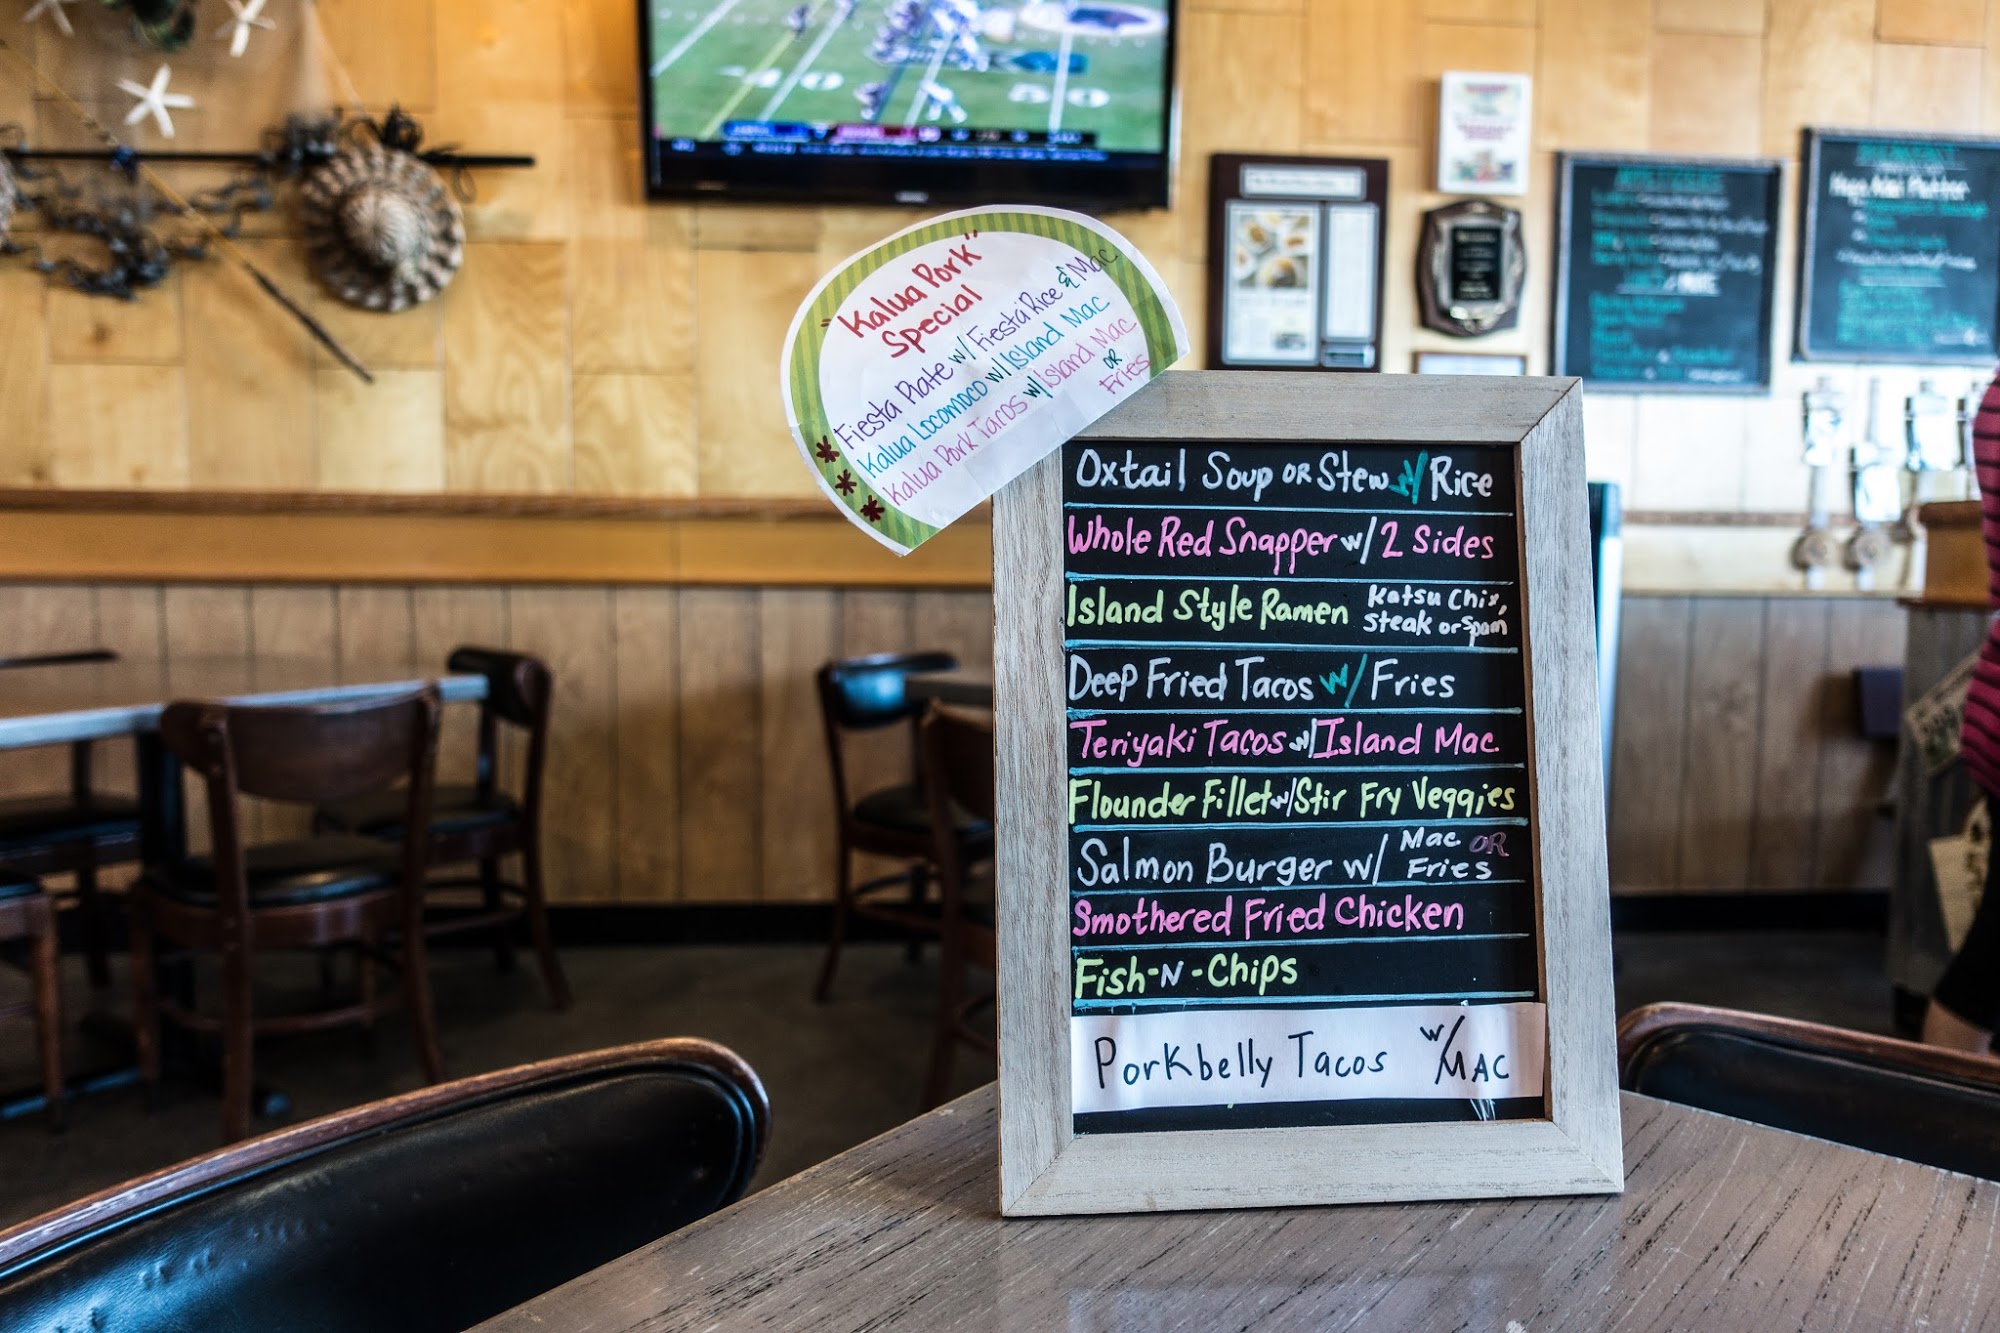 "Kalua Pork"
Special
* Fiesta Plate w/ Fiesta Rice & Mac
* Kalua Locomoco w/ Island Mac
* Kalua Pork Tacos w/ Island Mac
OR
Fries
Oxtail Soup OR Stew w/ Rice
Whole Red Snapper w/ 2 Sides
Island Style Ramen Katsu Chix,
Steak or Spam
Deep Fried Tacos w/ Fries
Teriyaki Tacos w/ Island Mac
Flounder Fillet w/ Stir Fry Veggies
Salmon Burger w/ Mac OR
Fries
Smothered Fried Chicken
Fish-N-Chips
Porkbelly Tacos w/ MAC